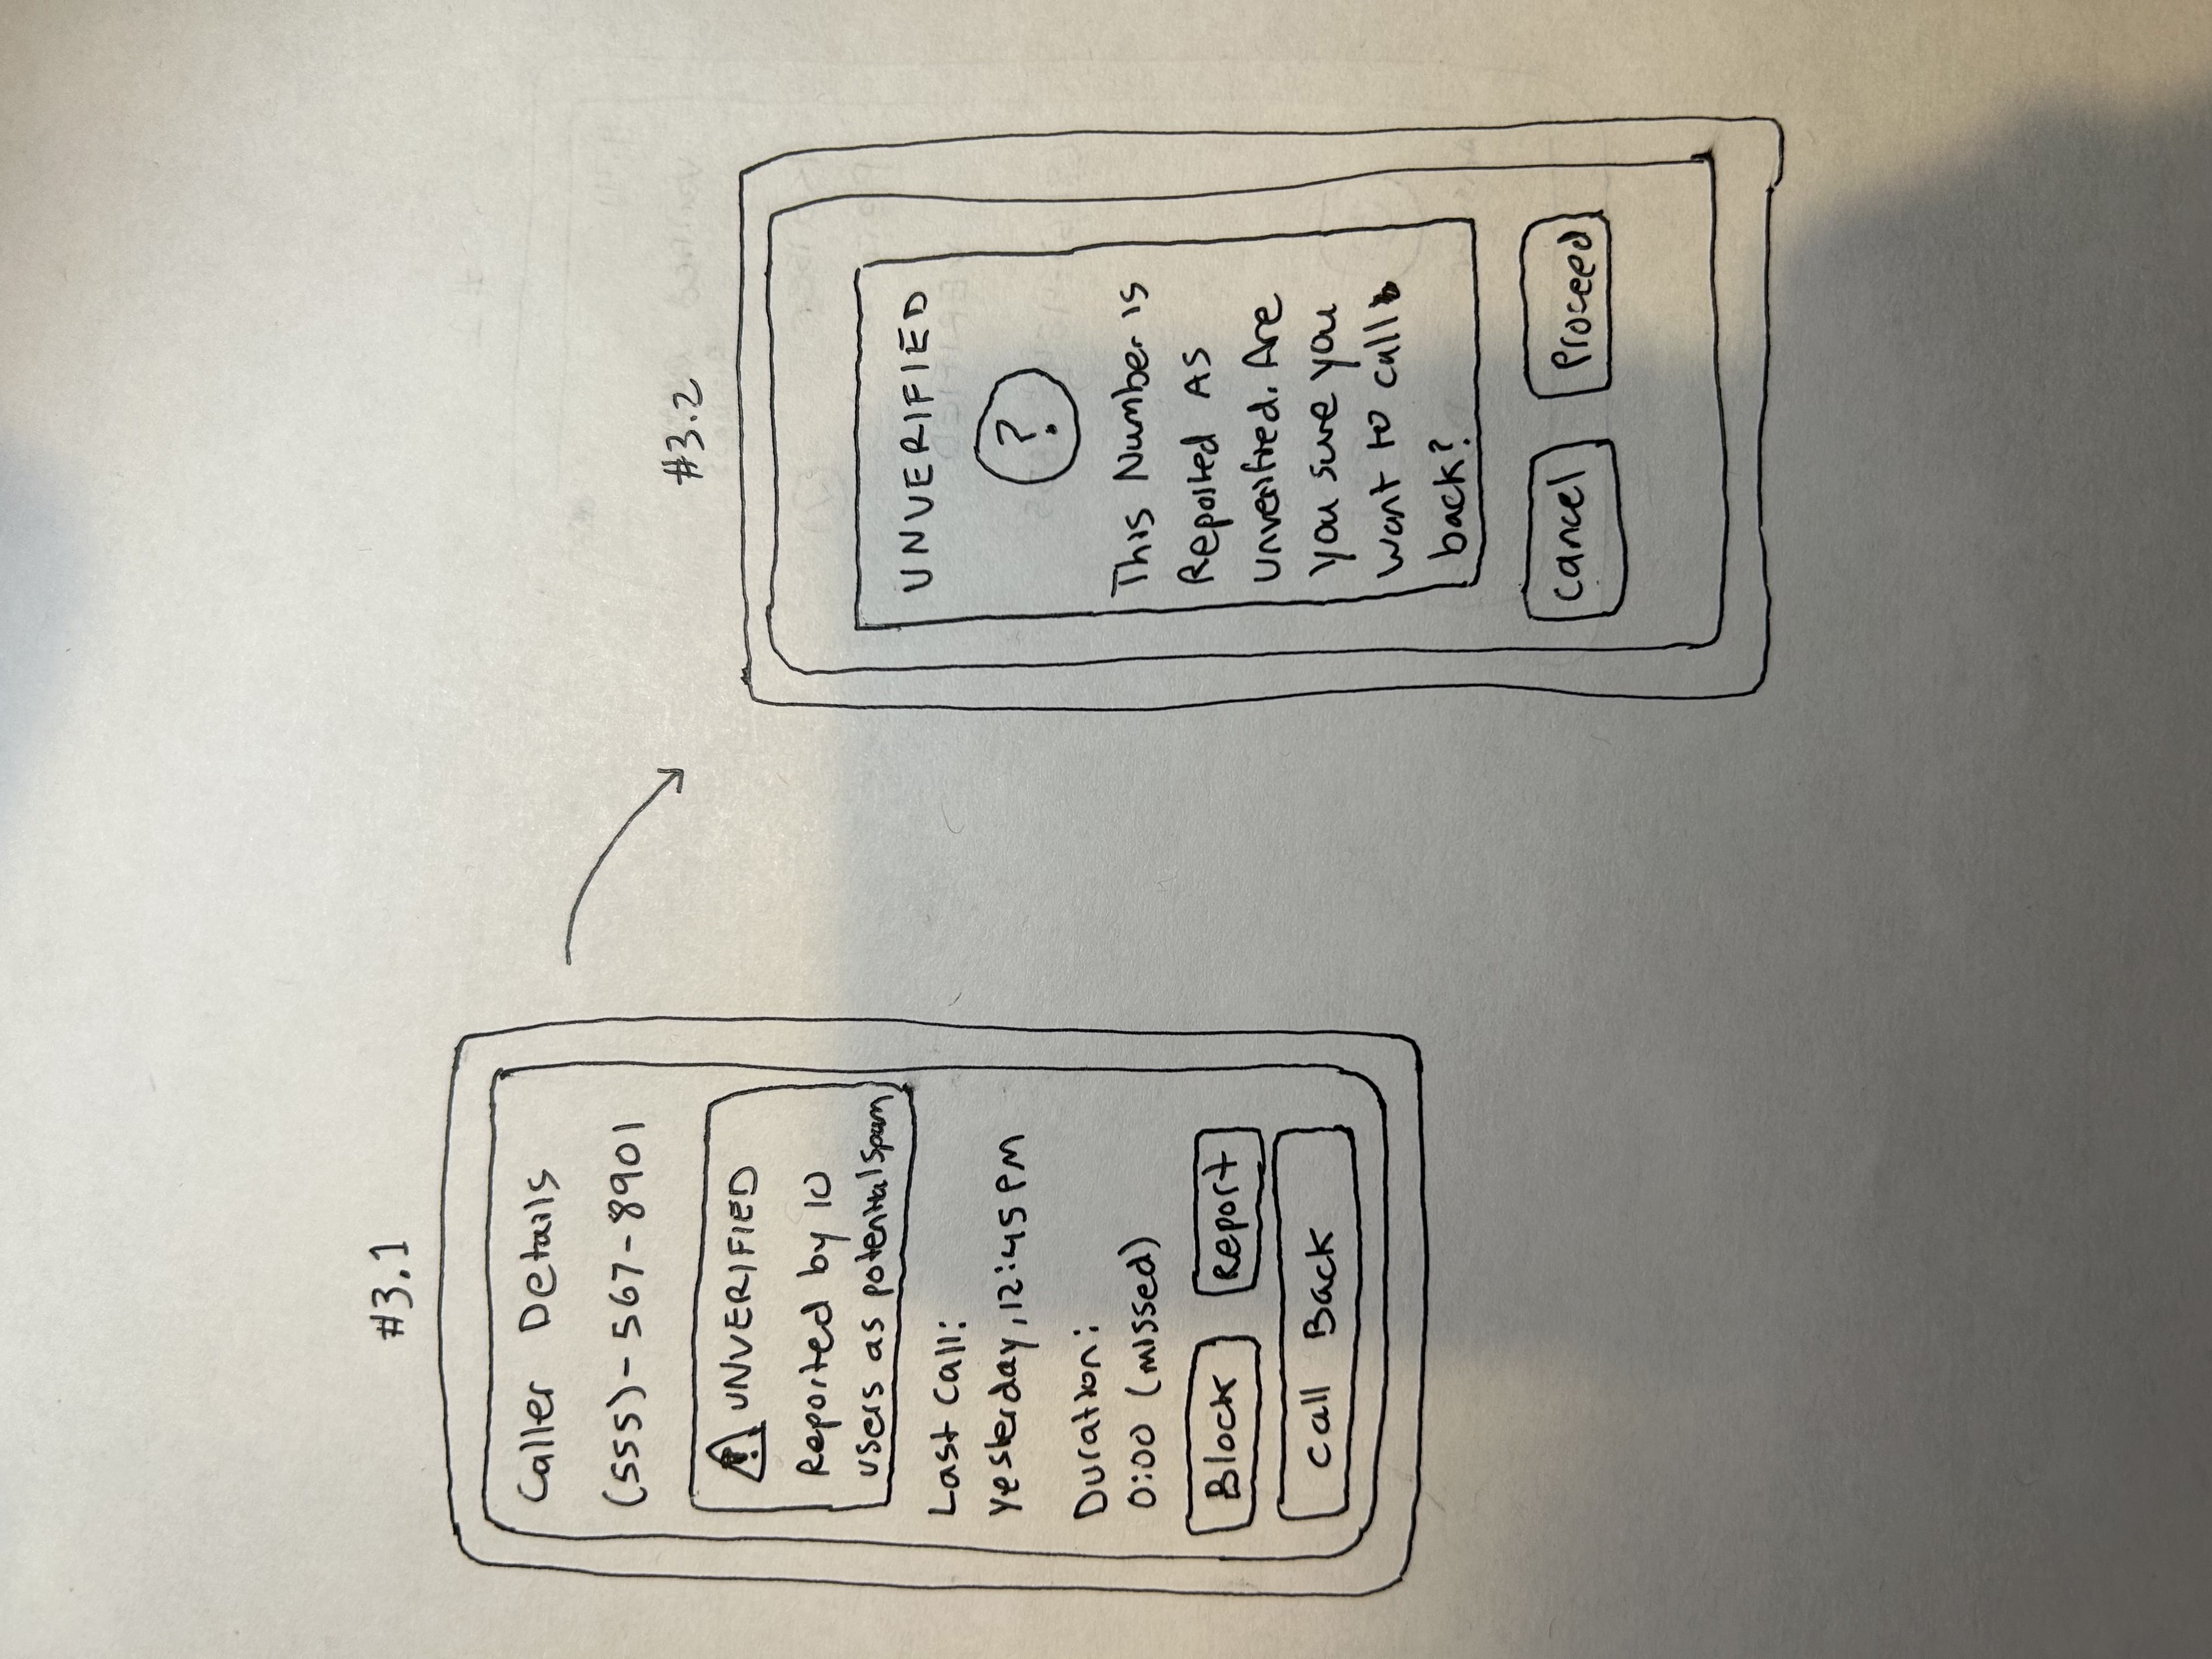 #3.1
Caller Details
(555)-567-8901
UNVERIFIED
Reported by 10
users as potential spam
Last Call:
Yesterday, 12:45 PM
Duration:
0:00 (missed)
Block Report
Call Back
#3.2
UNVERIFIED
?
This Number is
Reported As
unverified. Are
you sure you
want to call
back?
Cancel Proceed